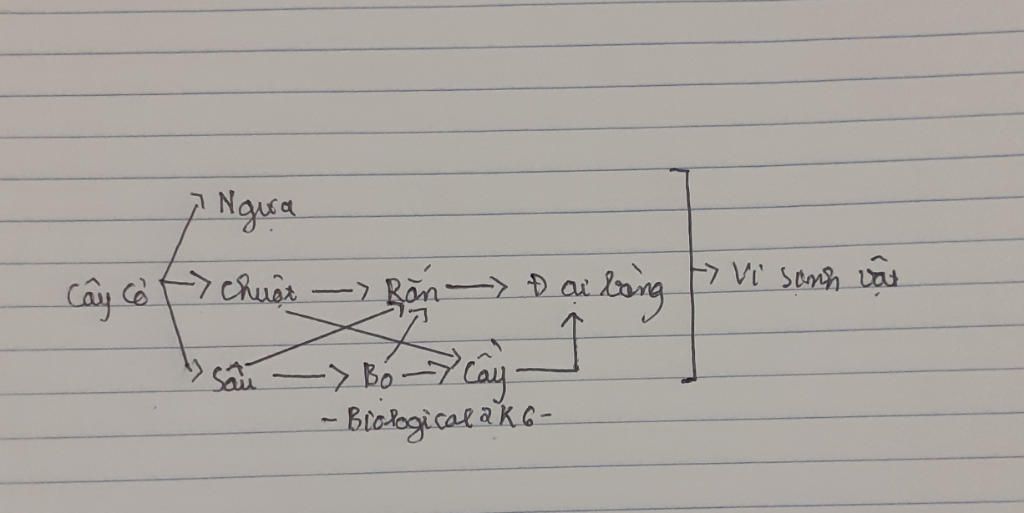 Ngựa
Cây cỏ → Chuột → Rắn → Đại bàng → Vi sanh vật
Sâu → Bọ → Cầy
- Biological 2K6 -